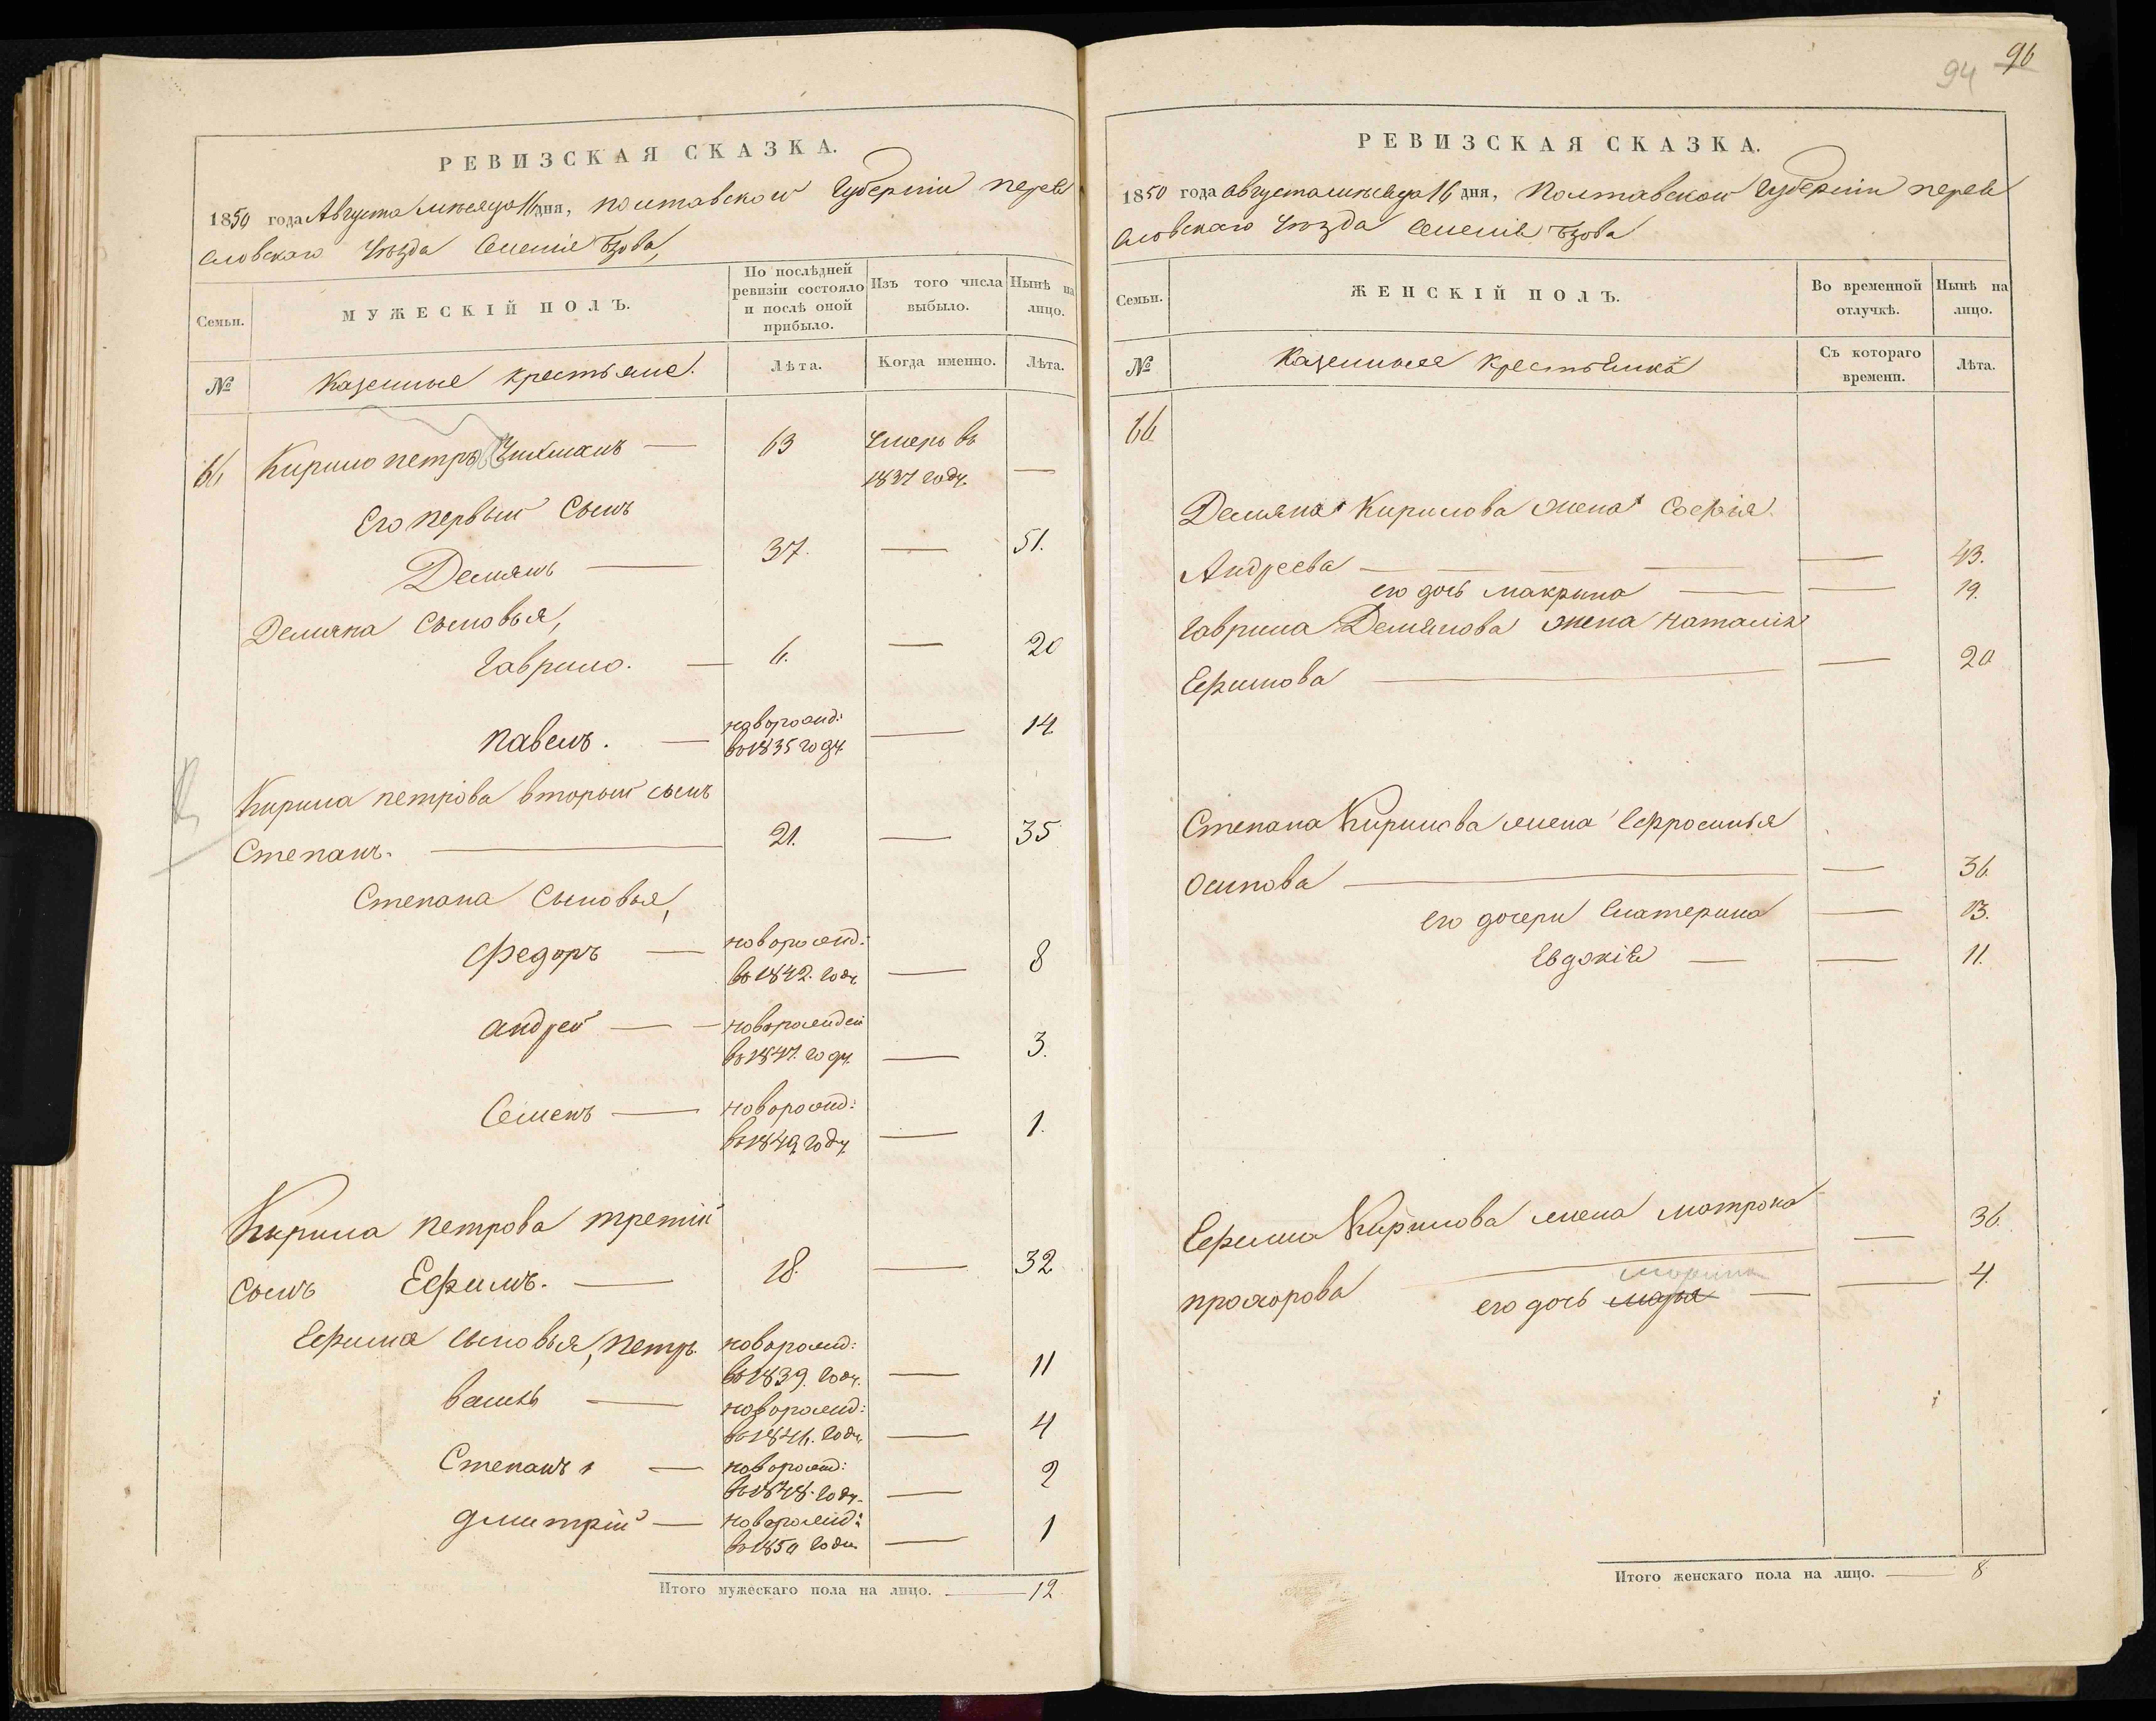 РЕВИЗСКАЯ СКАЗКА.
1850 года Августа месяца 16 дня, полтавской Губернии перея
словскаго Уезда Селение Бзова,
Семьи.
МУЖЕСКІЙ ПОЛЪ.
По послѣдней ревизіи состояло и послѣ оной прибыло.
Изъ того числа выбыло.
Нынѣ на лицо.
№
Казенные крестьяне.
Лѣта.
Когда именно.
Лѣта.
66 Кирило петровъ — 63 Умеръ въ
1837 году. —
Его первый Сынъ
Демянъ — 37. — 51.
Демяна Сыновья,
Гаврило. — 6. — 20
павелъ. — новорожд:
въ 1835 году — 14
Кирила петрова вторый сынъ
Степанъ. — 21. — 35
Степана Сыновья,
Федоръ — новорожд:
въ 1842. году — 8
андрей — новорожден
въ 1847. году. — 3.
Семенъ — новорожд:
въ 1849 году. — 1.
Кирила петрова третій
Сынъ Ефимъ. — 18. — 32
Ефима сыновья, петръ. новорожд:
въ 1839. году. — 11
василь — новорожд:
въ 1846. году — 4
Степанъ — новорожд:
въ 1848. году. — 2
дмитрій — новорожд:
въ 1850 году — 1
Итого мужескаго пола на лицо. — 12
94 96
РЕВИЗСКАЯ СКАЗКА.
1850 года августа месяца 16 дня, Полтавской Губернии перея
словскаго Уезда селение Бзова
Семьи.
ЖЕНСКІЙ ПОЛЪ.
Во временной отлучкѣ.
Нынѣ на лицо.
№
Казенные Крестьянки
Съ котораго времени.
Лѣта.
66
Демяна Кирилова жена Софія
Андреева — — 43.
его дочь макрина — — 19.
Гаврила Демянова жена наталія
Ефимова — — 20
Степана Кирилова жена Ефросинья
осипова — — 36.
его дочери Екатерина — 13.
Евдокія — — 11.
Ефима Кирилова жена матрона — 36.
прохорова —
марина
его дочь марья — — 4.
Итого женскаго пола на лицо. — 8